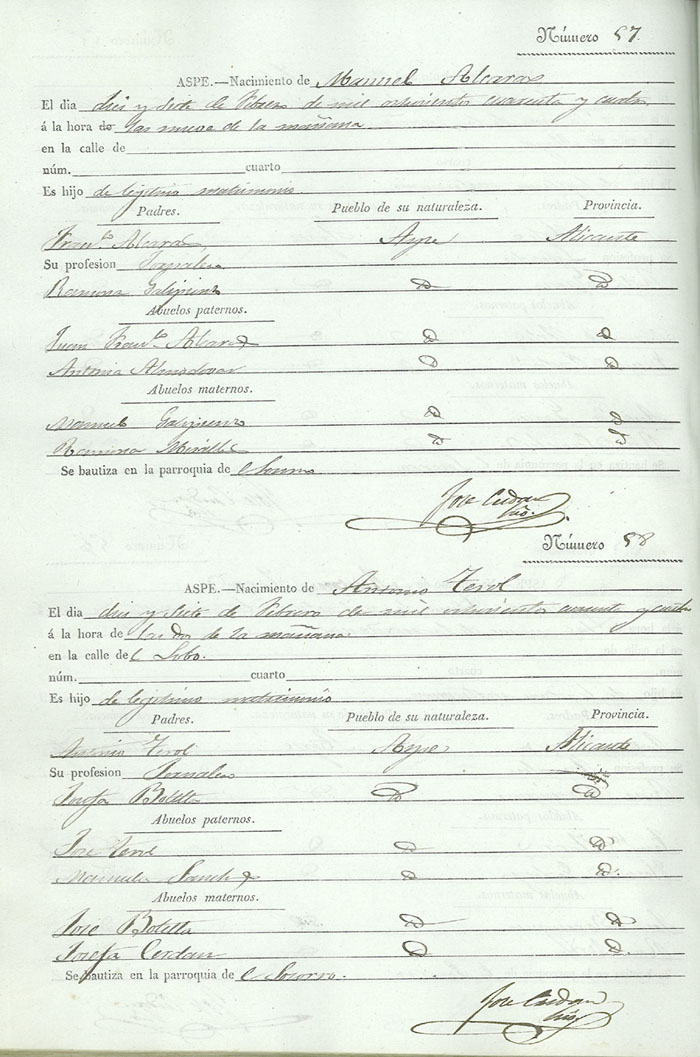 Número 57.
ASPE.—Nacimiento de Manuel Alcaras
El dia diez y siete de Febrero de mil ochocientos cuarenta y cuatro
á la hora de las nueve de la mañana
en la calle de
núm. cuarto
Es hijo de legitimo matrimonio
Padres. Pueblo de su naturaleza. Provincia.
Franco. Alcaras Aspe Alicante
Su profesion Jornalero
Ramona Galipienzo D D
Abuelos paternos.
Juan Franco. Alcaras D D
Antonia Almodovar D D
Abuelos maternos.
Manuel Galipienzo D D
Ramona Miralles D D
Se bautiza en la parroquia de el Socorro
Jose Cerdan
Número 58
ASPE.—Nacimiento de Antonio Terol
El dia diez y siete de Febrero de mil ochocientos cuarenta y cuatro
á la hora de las dos de la mañana
en la calle del Lobo.
núm. cuarto
Es hijo de legitimo matrimonio
Padres. Pueblo de su naturaleza. Provincia.
Antonio Terol Aspe Alicante
Su profesion Jornalero
Josefa Botella D D
Abuelos paternos.
Jose Terol D D
Manuela Sanchez D D.
Abuelos maternos.
Jose Botella D D
Josefa Cerdan D D
Se bautiza en la parroquia de el Socorro.
Jose Cerdan